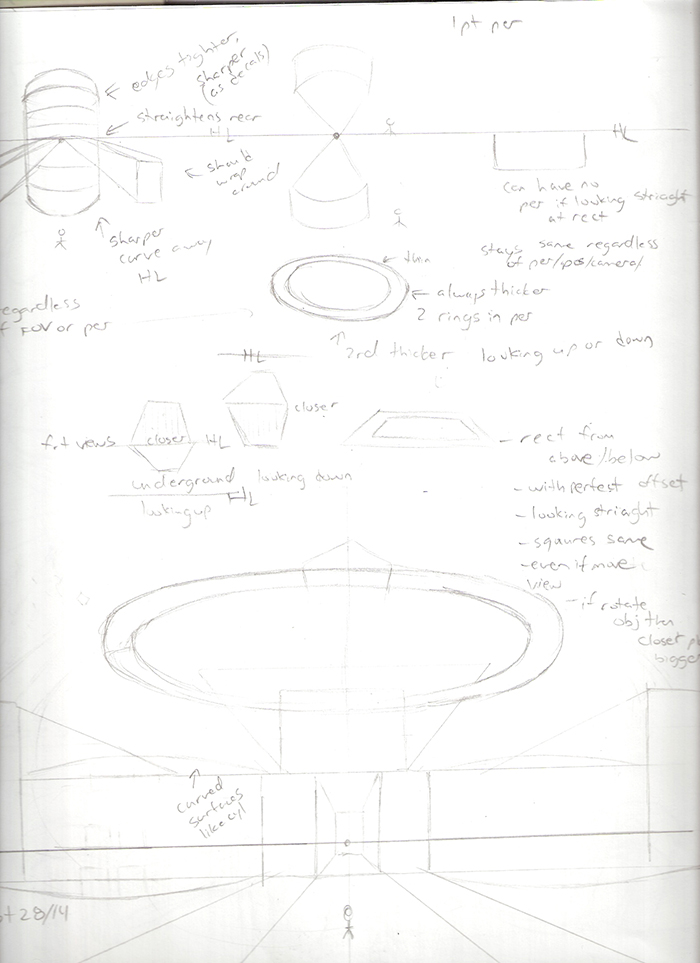 1pt per
edges tighter,
sharper
(as decals)
straightens near
HL
HL
should
wrap
around
can have no
per if looking striaght
at rect
sharper
curve away
HL
stays same regardless
of per/pos/camera/
thin
always thicker
2 rings in per
regardless
of FOV or per
2rd thicker looking up or down
HL
closer
frt views
closer
HL
underground looking down
HL
looking up
- rect from
above/below
- with perfest offset
- looking striaght
- sqaures same
- even if move
view
- if rotate
obj then
closet
bigger
curved
surfaces
like cyl
28/14